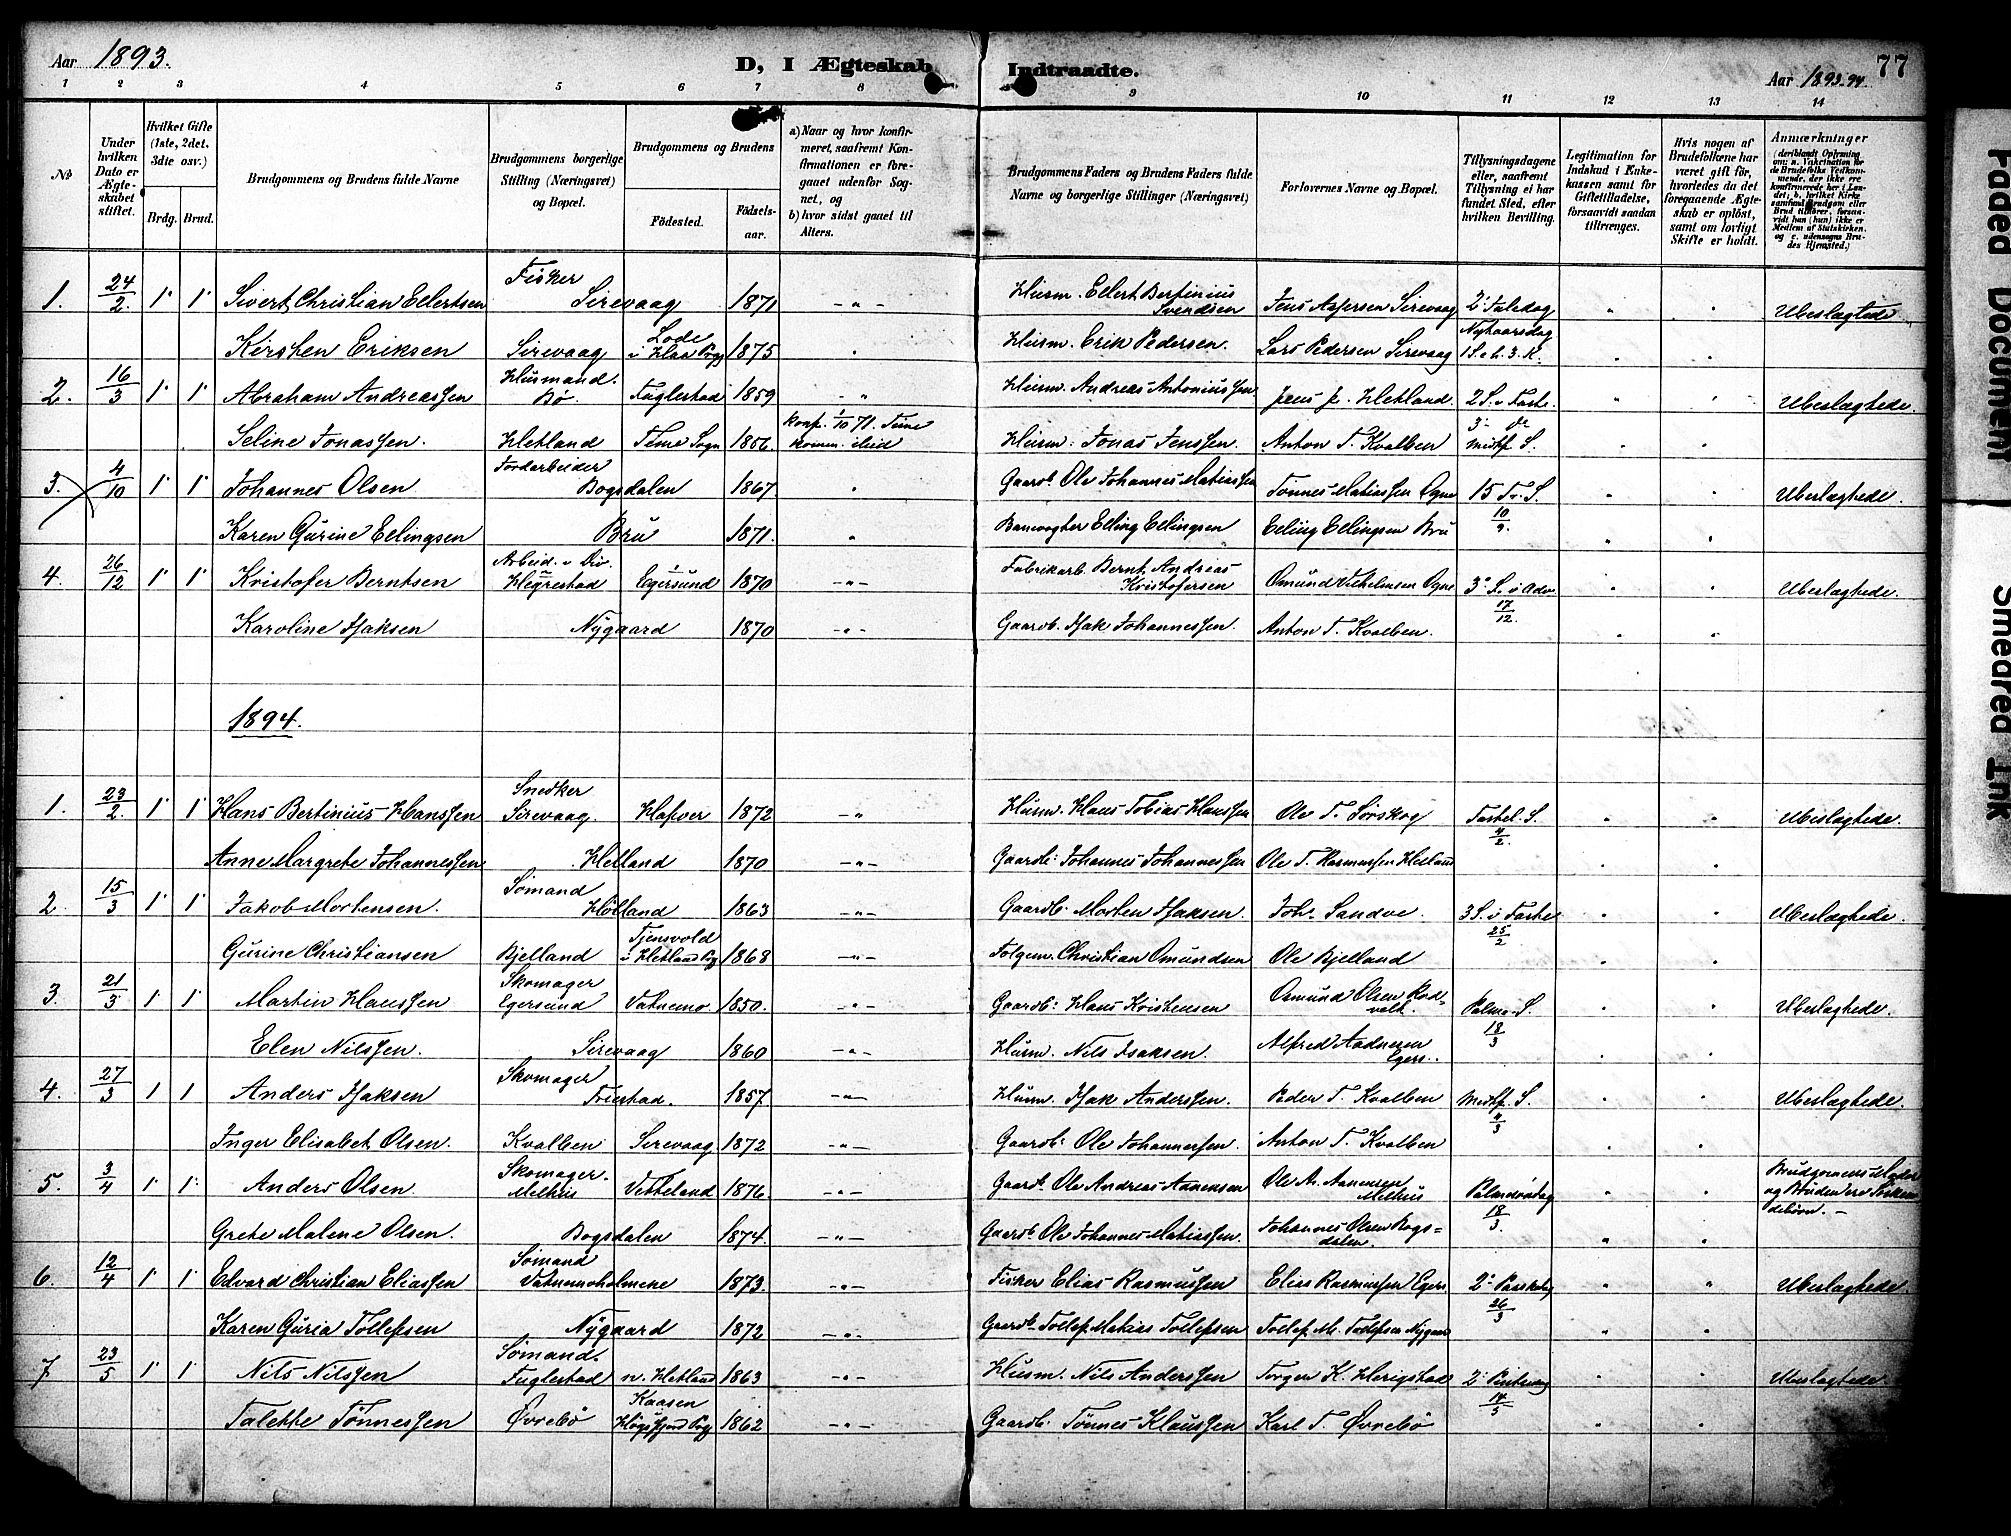 Aar 1893.
D, I Ægteskab Indtraadte.
Aar 1893-94.
77
1 2 3 4 5 6 7 8 9 10 11 12 13 14
No
Under hvilken Dato er Ægteskabet stiftet.
Hvilket Gifte (1ste, 2det, 3die osv.)
Brdg. Brud.
Brudgommens og Brudens fulde Navne
Brudgommens borgerlige Stilling (Næringsvei) og Bopæl.
Brudgommens og Brudens
Fødested.
Fødselsaar.
a) Naar og hvor konfirmeret, saafremt Konfirmationen er foregaaet udenfor Sognet, og
b) hvor sidst gaaet til Alters.
Brudgommens Faders og Brudens Faders fulde Navne og borgerlige Stillinger (Næringsvei)
Forlovernes Navne og Bopæl.
Tillysningsdagene eller, saafremt Tillysning ei har fundet Sted, efter hvilken Bevilling.
Legitimation for Indskud i Enkekassen samt for Giftetilladelse, forsaavidt saadan tiltrænges.
Hvis nogen af Brudefolkene har været gift før, hvorledes da det foregaaende Ægteskab er opløst, samt om lovligt Skifte er holdt.
Anmærkninger (deriblandt Oplysning om: a. Vakcination for de Brudefolks Vedkommende, der ikke ere konfirmerede her i Landet, b. hvilket Kirkesamfund Brudgom eller Brud tilhører, forsaavidt han (hun) ikke er Medlem af Statskirken, og c. udensogns Brudes Hjemsted.)
1. 24/2 1 1 Sivert Christian Ellertsen Fisker Sirevaag 1871 - " - Husm. Ellert Bertinius Svendsen Jens Asgersen Sirevaag 2. Juledag " " Ubeslægtede
Kirsten Eriksen Sirevaag Lode i Haa Pgj 1875 " Husm. Erik Pedersen. Lars Pedersen Sirevaag Nytaarsdag 1 S. e. h. 3. K. " "
2. 16/3 1 1 Abraham Andreassen Husmand. Bø. Fuglestad 1859 " Husm. Andreas Antoniussen Jens J. Hetland. 2 S. i Faste. " " Ubeslægtede.
Seline Jonassen. Hetland Time Sogn 1856. Konf. 1/10 71. Time komm. ibid Husm. Jonas Jenssen. Anton T. Kvalben 3. do Midtf S. " "
3. 4/10 1 1 Johannes Olsen Jordarbeider Bogsdalen 1867 " Gaardb. Ole Johannes Matiassen Tønnes Matiassen Ogne 15 Tr. S. " " Ubeslægtede.
Karen Gurine Ellingsen Bru 1871. " Banevogter Elling Ellingsen Elling Ellingsen Bru 10/9. " "
4. 26/12 1 1 Kristofer Berntsen Arbeid. v Div. Hegrestad Egersund 1870 - " - Fabrikarb. Bernt Andreas Kristofersen Omund Vilhelmsen Ogne 3. S. i Adv. " " Ubeslægtede.
Karoline Isaksen Nygaard 1870 - " - Gaardb. Isak Johannessen. Anton T. Kvalben. 17/12. " "
1894.
1. 23/2. 1 1 Hans Bertinius Hanssen Snedker Sirevaag. Hafver 1872 - " Husm. Hans Tobias Hanssen Ole T. Sørskog Fastel. S. " " Ubeslægtede.
Anne Margrete Johannessen Hetland 1870 - " - Gaardb. Johannes Johannessen Ole T. Rasmussen Hetland 4/2. " "
2. 15/3 1 1 Jakob Mortensen. Sømand Hølland 1863 - " - Gaardb. Morten Isaksen. Joh. Sandve. 3 S. i Faste " " Ubeslægtede.
Gurine Christiansen Bjelland Tjensvold i Hetland Pgj 1868 - " - Folgem. Christian Omundsen Ole Bjelland 25/2 " "
3. 21/3 1 1 Martin Hanssen Skomager Egersund Vatnemo. 1850. - " - Gaardb. Hans Kristensen Osmund Olsen Rodvelt. Palme S. " " Ubeslægtede.
Elen Nilssen. Sirevaag 1860 - " - Husm. Nils Isaksen. Alfred Aadnesen Egers.. 18/3 " "
4. 27/3 1 1 Anders Isaksen Skomager Friestad. 1857. - " - Husm. Isak Anderssen. Peder T. Kvalben Midtf. S. " " Ubeslægtede.
Inger Elisabet Olsen. Kvalben Sirevaag 1872 - " - Gaardb. Ole Johannessen. Anton T. Kvalben 4/3 " "
5. 3/4 1 1 Anders Olsen Skomager. Melhus Vetteland 1876 - " - Gaardb. Ole Andreas Aanensen Ole A. Aanensen Melhus Palmesøndag " " Brudgommens Moder og Bruden ere Søskendebørn. -
Grete Malene Olsen. Bogsdalen 1874. - " - Gaardb. Ole Johannes Matiassen. Johannes Olsen Bogsdalen. 18/3. " "
6. 12/4 1 1 Edvard Christian Eliassen Sømand Vatnemoholmene 1873. - " - Fisker Elias Rasmussen Elias Rasmussen Egers. 2. Paaskedag " " Ubeslægtede.
Karen Guria Tollefsen Nygaard 1872 - " - Gaardb. Tollef Matias Tollefsen Tollef M. Tollefsen Nygaard 26/3 " "
7 23/5 1 1 Nils Nilssen Sømand. Fuglestad n. Hetland 1863 - " - Husm. Nils Anderssen Torger K. Herigstad 2. Pintsedag " " Ubeslægtede
Talette Tønnessen Øvrebø Kaasen Høgsfjord Pgj 1862 - " - Gaardb. Tønnes Klaussen Karl T. Øvrebø 14/5 " "
Faded Document
Smeared Ink